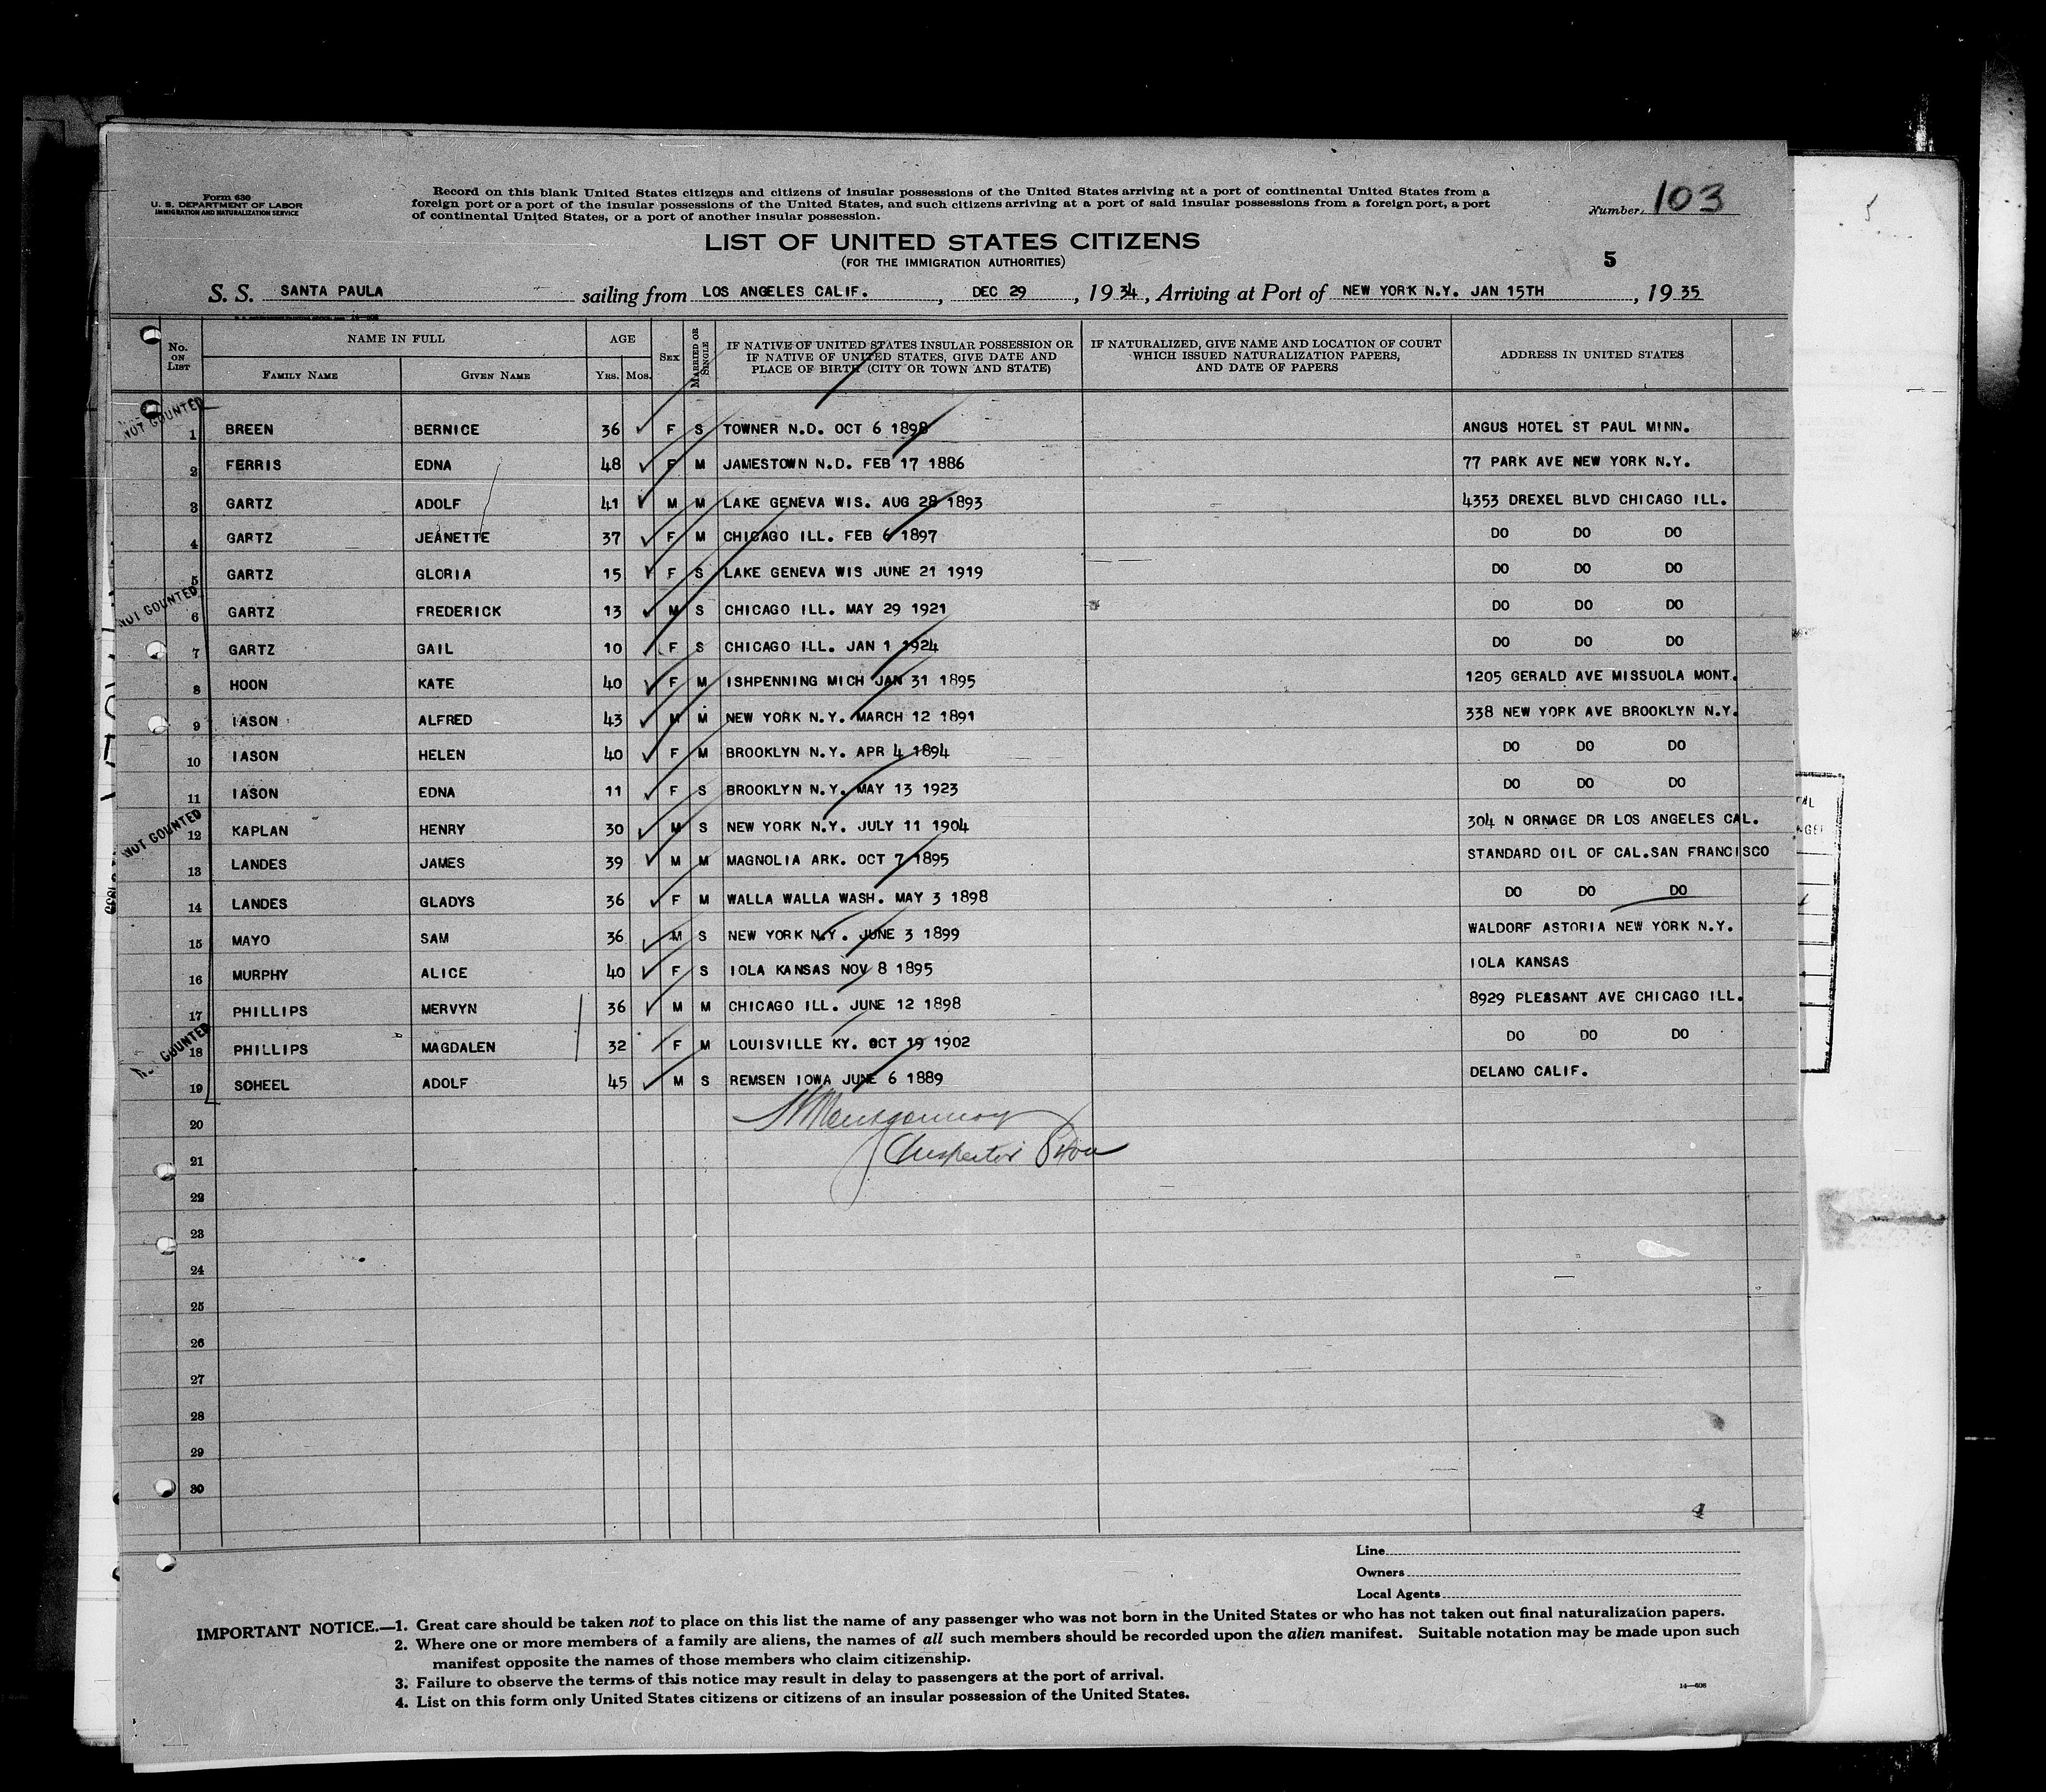 Form 630
U. S. DEPARTMENT OF LABOR
IMMIGRATION AND NATURALIZATION SERVICE
Record on this blank United States citizens and citizens of insular possessions of the United States arriving at a port of continental United States from a
foreign port or a port of the insular possessions of the United States, and such citizens arriving at a port of said insular possessions from a foreign port, a port
of continental United States, or a port of another insular possession.
Number 103
LIST OF UNITED STATES CITIZENS
(FOR THE IMMIGRATION AUTHORITIES)
5
S. S. SANTA PAULA sailing from LOS ANGELES CALIF. , DEC 29 , 19 34 , Arriving at Port of NEW YORK N.Y. JAN 15TH , 19 35
No. ON LIST NAME IN FULL FAMILY NAME GIVEN NAME AGE YRS. MOS. SEX MARRIED OR SINGLE IF NATIVE OF UNITED STATES INSULAR POSSESSION OR IF NATIVE OF UNITED STATES, GIVE DATE AND PLACE OF BIRTH (CITY OR TOWN AND STATE) IF NATURALIZED, GIVE NAME AND LOCATION OF COURT WHICH ISSUED NATURALIZATION PAPERS, AND DATE OF PAPERS ADDRESS IN UNITED STATES
NOT COUNTED
1 BREEN BERNICE 36 F S TOWNER N.D. OCT 6 1898 ANGUS HOTEL ST PAUL MINN.
2 FERRIS EDNA 48 F M JAMESTOWN N.D. FEB 17 1886 77 PARK AVE NEW YORK N.Y.
3 GARTZ ADOLF 41 M M LAKE GENEVA WIS. AUG 28 1893 4353 DREXEL BLVD CHICAGO ILL.
4 GARTZ JEANETTE 37 F M CHICAGO ILL. FEB 6 1897 DO DO DO
5 GARTZ GLORIA 15 F S LAKE GENEVA WIS JUNE 21 1919 DO DO DO
NOT COUNTED
6 GARTZ FREDERICK 13 M S CHICAGO ILL. MAY 29 1921 DO DO DO
7 GARTZ GAIL 10 F S CHICAGO ILL. JAN 1 1924 DO DO DO
8 HOON KATE 40 F M ISHPENNING MICH JAN 31 1895 1205 GERALD AVE MISSUOLA MONT.
9 IASON ALFRED 43 M M NEW YORK N.Y. MARCH 12 1891 338 NEW YORK AVE BROOKLYN N.Y.
10 IASON HELEN 40 F M BROOKLYN N.Y. APR 4 1894 DO DO DO
11 IASON EDNA 11 F S BROOKLYN N.Y. MAY 13 1923 DO DO DO
NOT COUNTED
12 KAPLAN HENRY 30 M S NEW YORK N.Y. JULY 11 1904 304 N ORNAGE DR LOS ANGELES CAL.
13 LANDES JAMES 39 M M MAGNOLIA ARK. OCT 7 1895 STANDARD OIL OF CAL.SAN FRANCISCO
14 LANDES GLADYS 36 F M WALLA WALLA WASH. MAY 3 1898 DO DO DO
15 MAYO SAM 36 M S NEW YORK N.Y. JUNE 3 1899 WALDORF ASTORIA NEW YORK N.Y.
16 MURPHY ALICE 40 F S IOLA KANSAS NOV 8 1895 IOLA KANSAS
17 PHILLIPS MERVYN 36 M M CHICAGO ILL. JUNE 12 1898 8929 PLEASANT AVE CHICAGO ILL.
COUNTED
18 PHILLIPS MAGDALEN 32 F M LOUISVILLE KY. OCT 19 1902 DO DO DO
19 SOHEEL ADOLF 45 M S REMSEN IOWA JUNE 6 1889 DELANO CALIF.
20 Montgomery
21 Inspector
22
23
24
25
26
27
28
29
30
4
Line
Owners
Local Agents
IMPORTANT NOTICE.—1. Great care should be taken not to place on this list the name of any passenger who was not born in the United States or who has not taken out final naturalization papers.
2. Where one or more members of a family are aliens, the names of all such members should be recorded upon the alien manifest. Suitable notation may be made upon such
manifest opposite the names of those members who claim citizenship.
3. Failure to observe the terms of this notice may result in delay to passengers at the port of arrival.
4. List on this form only United States citizens or citizens of an insular possession of the United States.
14—606